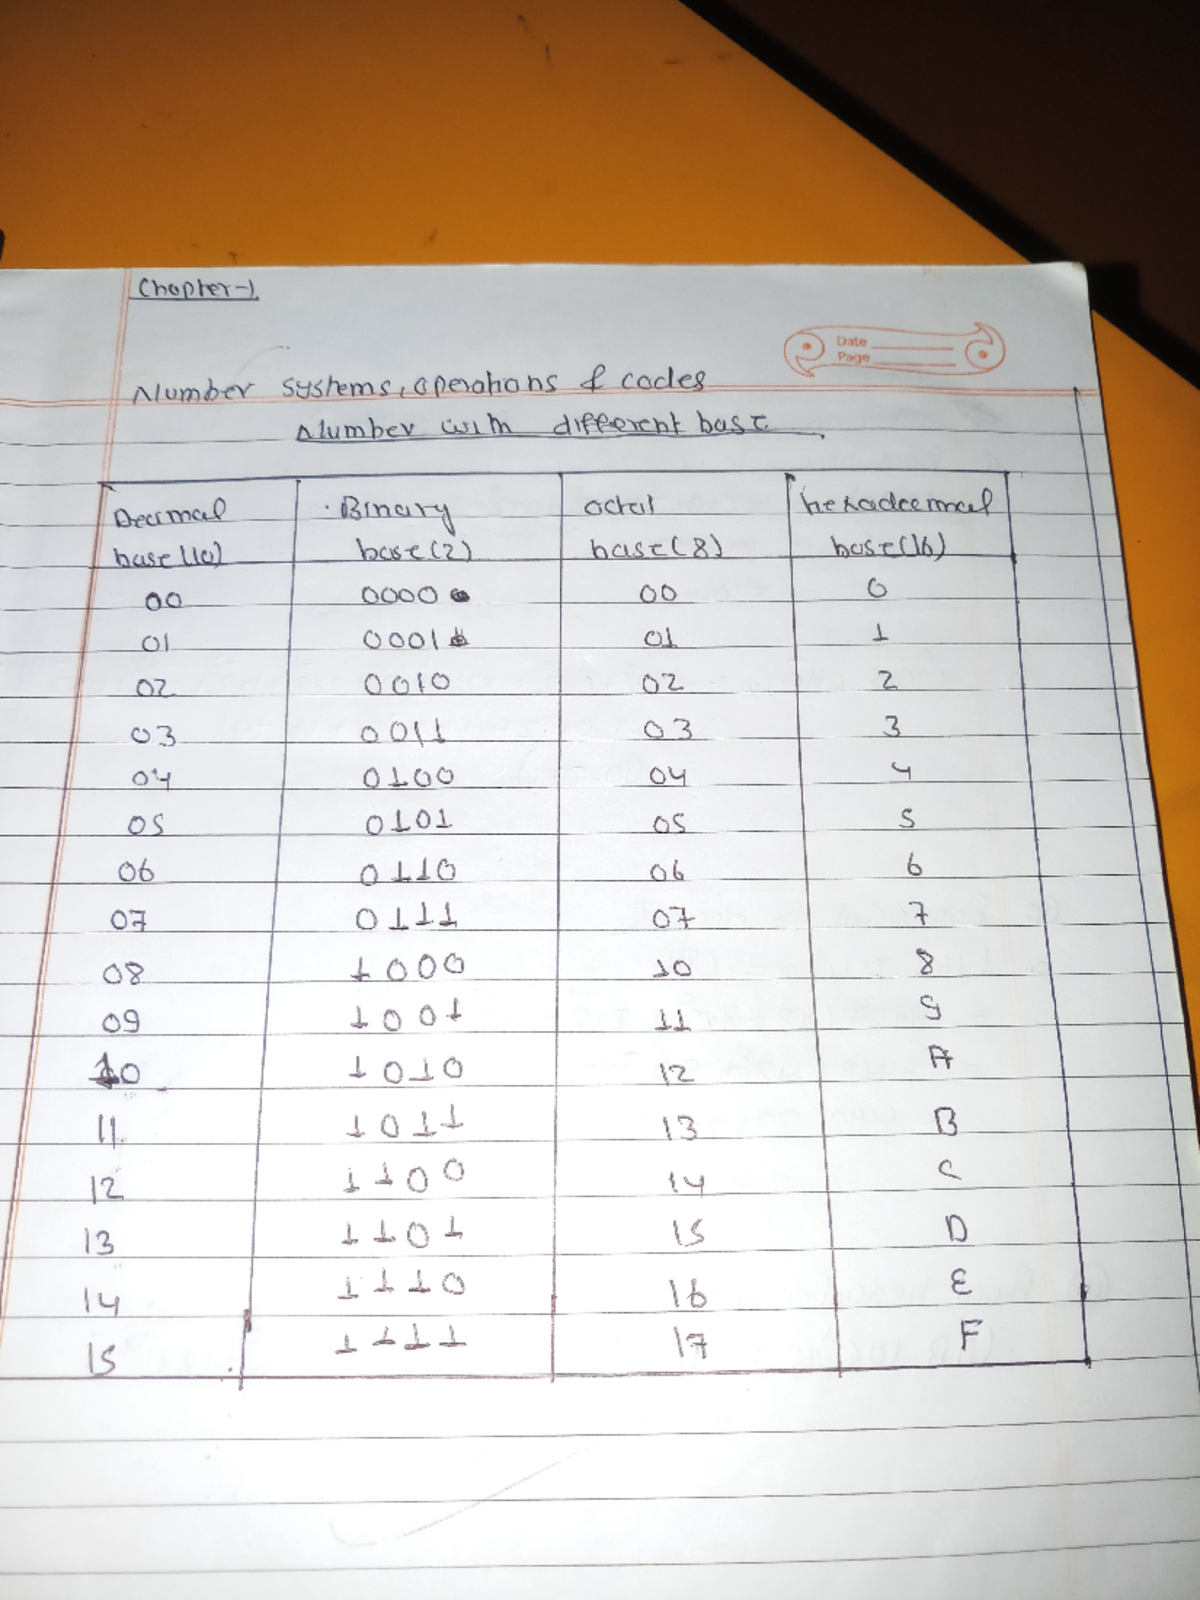 Chapter-1
Date
Page
Number systems, operations & codes
Number with different base
Decimal base(10) Binary base(2) octal base(8) hexadecimal base(16)
00 0000 00 0
01 0001 01 1
02 0010 02 2
03 0011 03 3
04 0100 04 4
05 0101 05 5
06 0110 06 6
07 0111 07 7
08 1000 10 8
09 1001 11 9
10 1010 12 A
11 1011 13 B
12 1100 14 C
13 1101 15 D
14 1110 16 E
15 1111 17 F